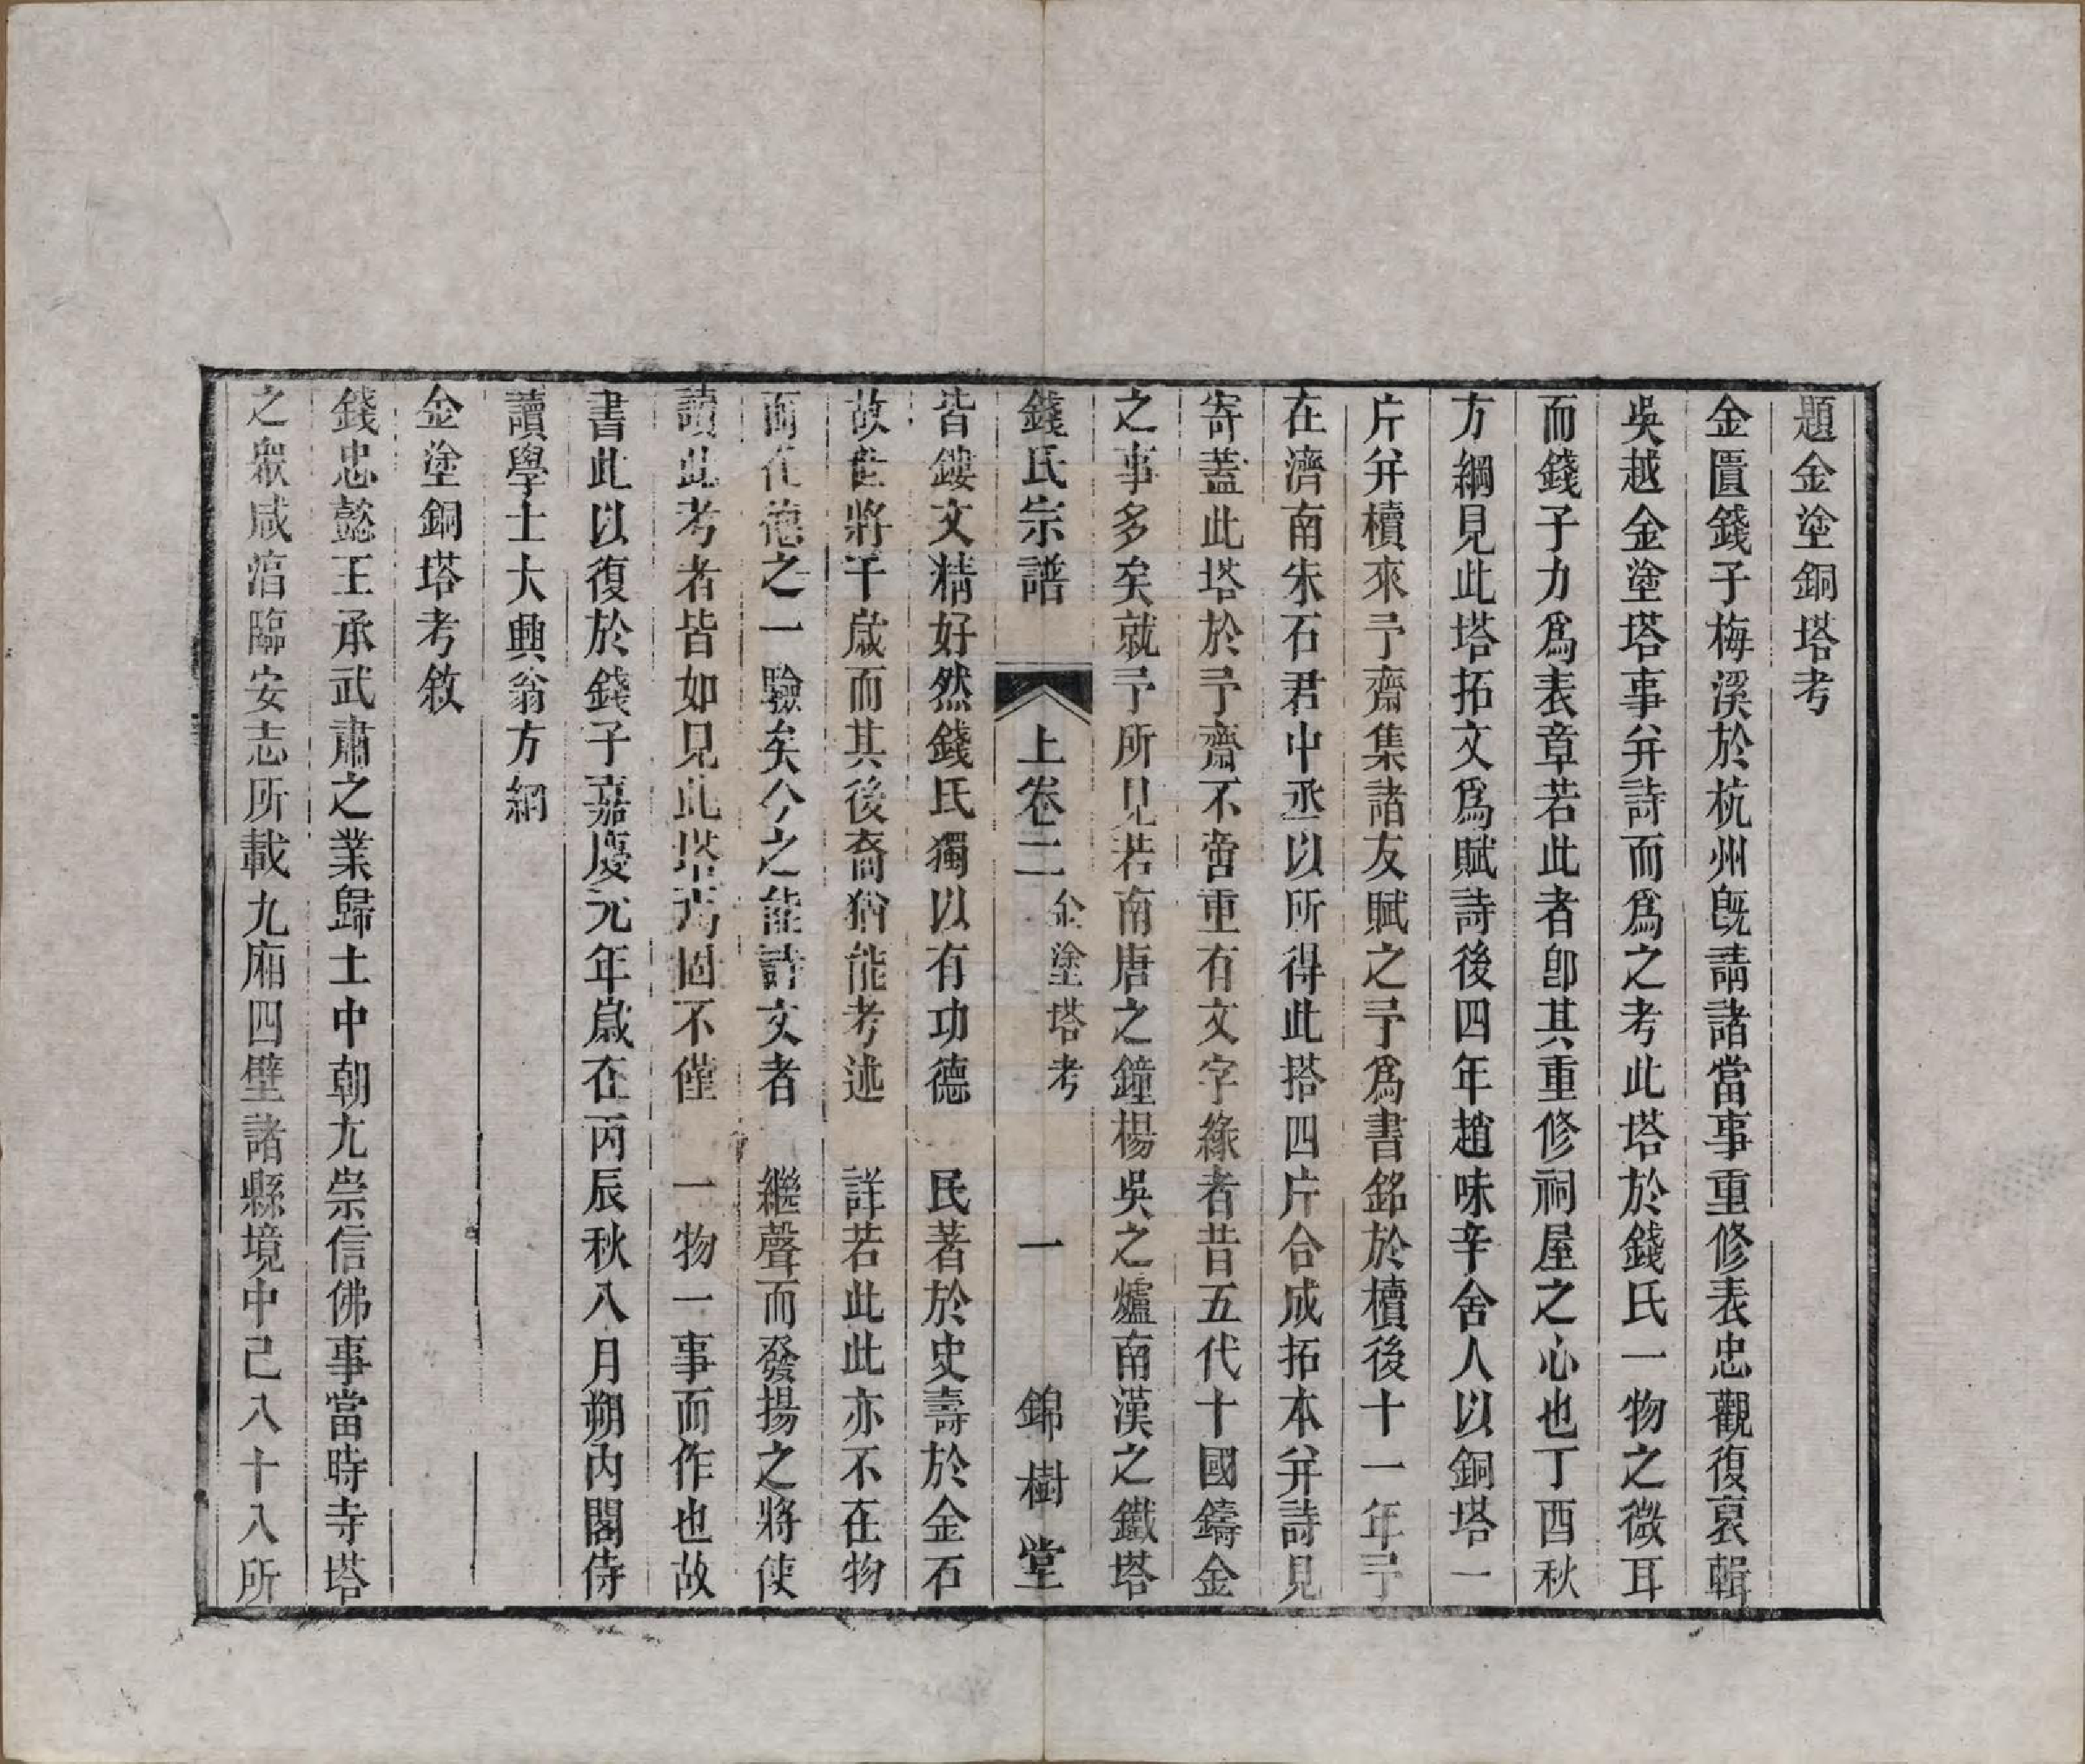 題金塗銅塔考
金匱錢子梅溪於杭州既請諸當事重修表忠觀復裒輯
吳越金塗塔事并詩而爲之考此塔於錢氏一物之微耳
而錢子力爲表章若此者卽其重修祠屋之心也丁酉秋
方綱見此塔拓文爲賦詩後四年趙味辛舍人以銅塔一
片并櫝來予齋集諸友賦之予爲書銘於櫝後十一年予
在濟南朱石君中丞以所得此搭四片合成拓本并詩見
寄蓋此塔於予齋不啻重有文字緣者昔五代十國鑄金
之事多矣就予所見若南唐之鐘楊吳之爐南漢之鐵塔
錢氏宗譜 上卷二 金塗塔考 一 錦樹堂
皆鏤文精好然錢氏獨以有功德 民著於史壽於金石
故世將千歲而其後裔猶能考述 詳若此此亦不在物
而在德之一驗矣今之能詩文者 繼聲而發揚之將使
讀此考者皆如見此塔焉固不僅 一物一事而作也故
書此以復於錢子嘉慶元年歲在丙辰秋八月朔內閣侍
讀學士大興翁方綱
金塗銅塔考敘
錢忠懿王承武肅之業歸土中朝尤崇信佛事當時寺塔
之眾咸湻臨安志所載九廂四壁諸縣境中已八十八所